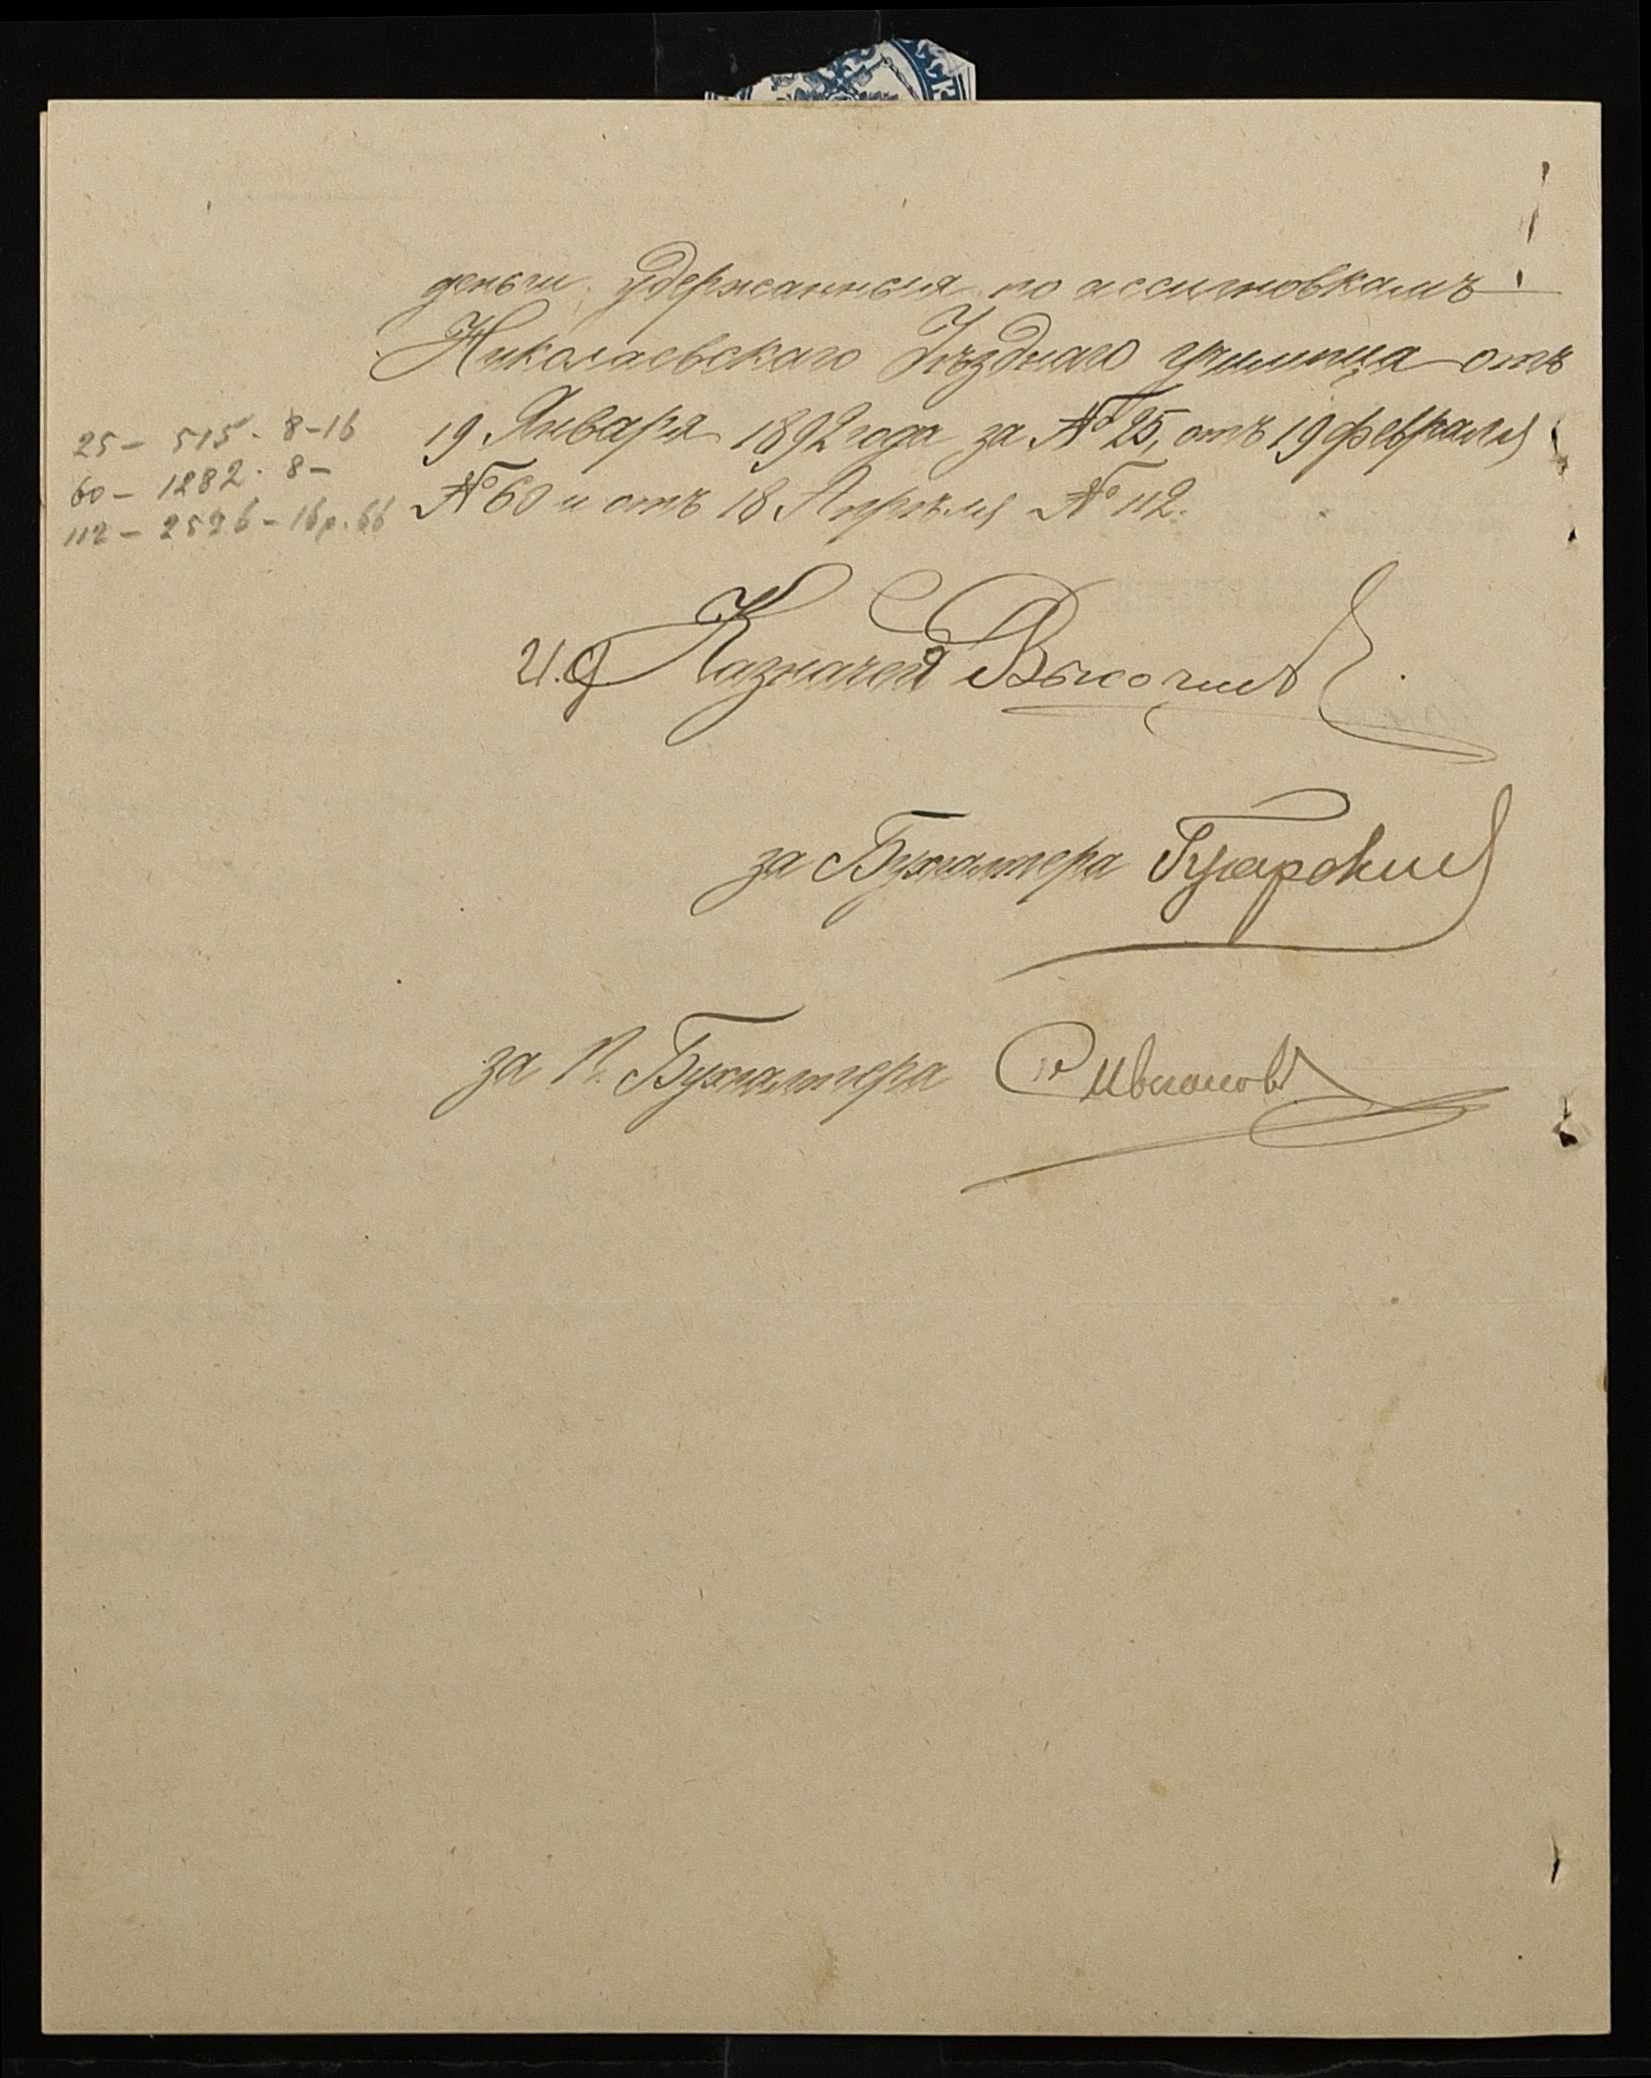 деньги, удержанныя по ассигновкамъ
Николаевскаго Уѣзднаго училища отъ
25 – 515 . 8–16
19 Января 1892 года за № 25, отъ 19 февраля
60 – 1282 . 8 –
№ 60 и отъ 18 Апрѣля № 112.
112 – 2526 – 16 р. 66
И. д Казначея
за Бухгалтера
за П. Бухгалтера